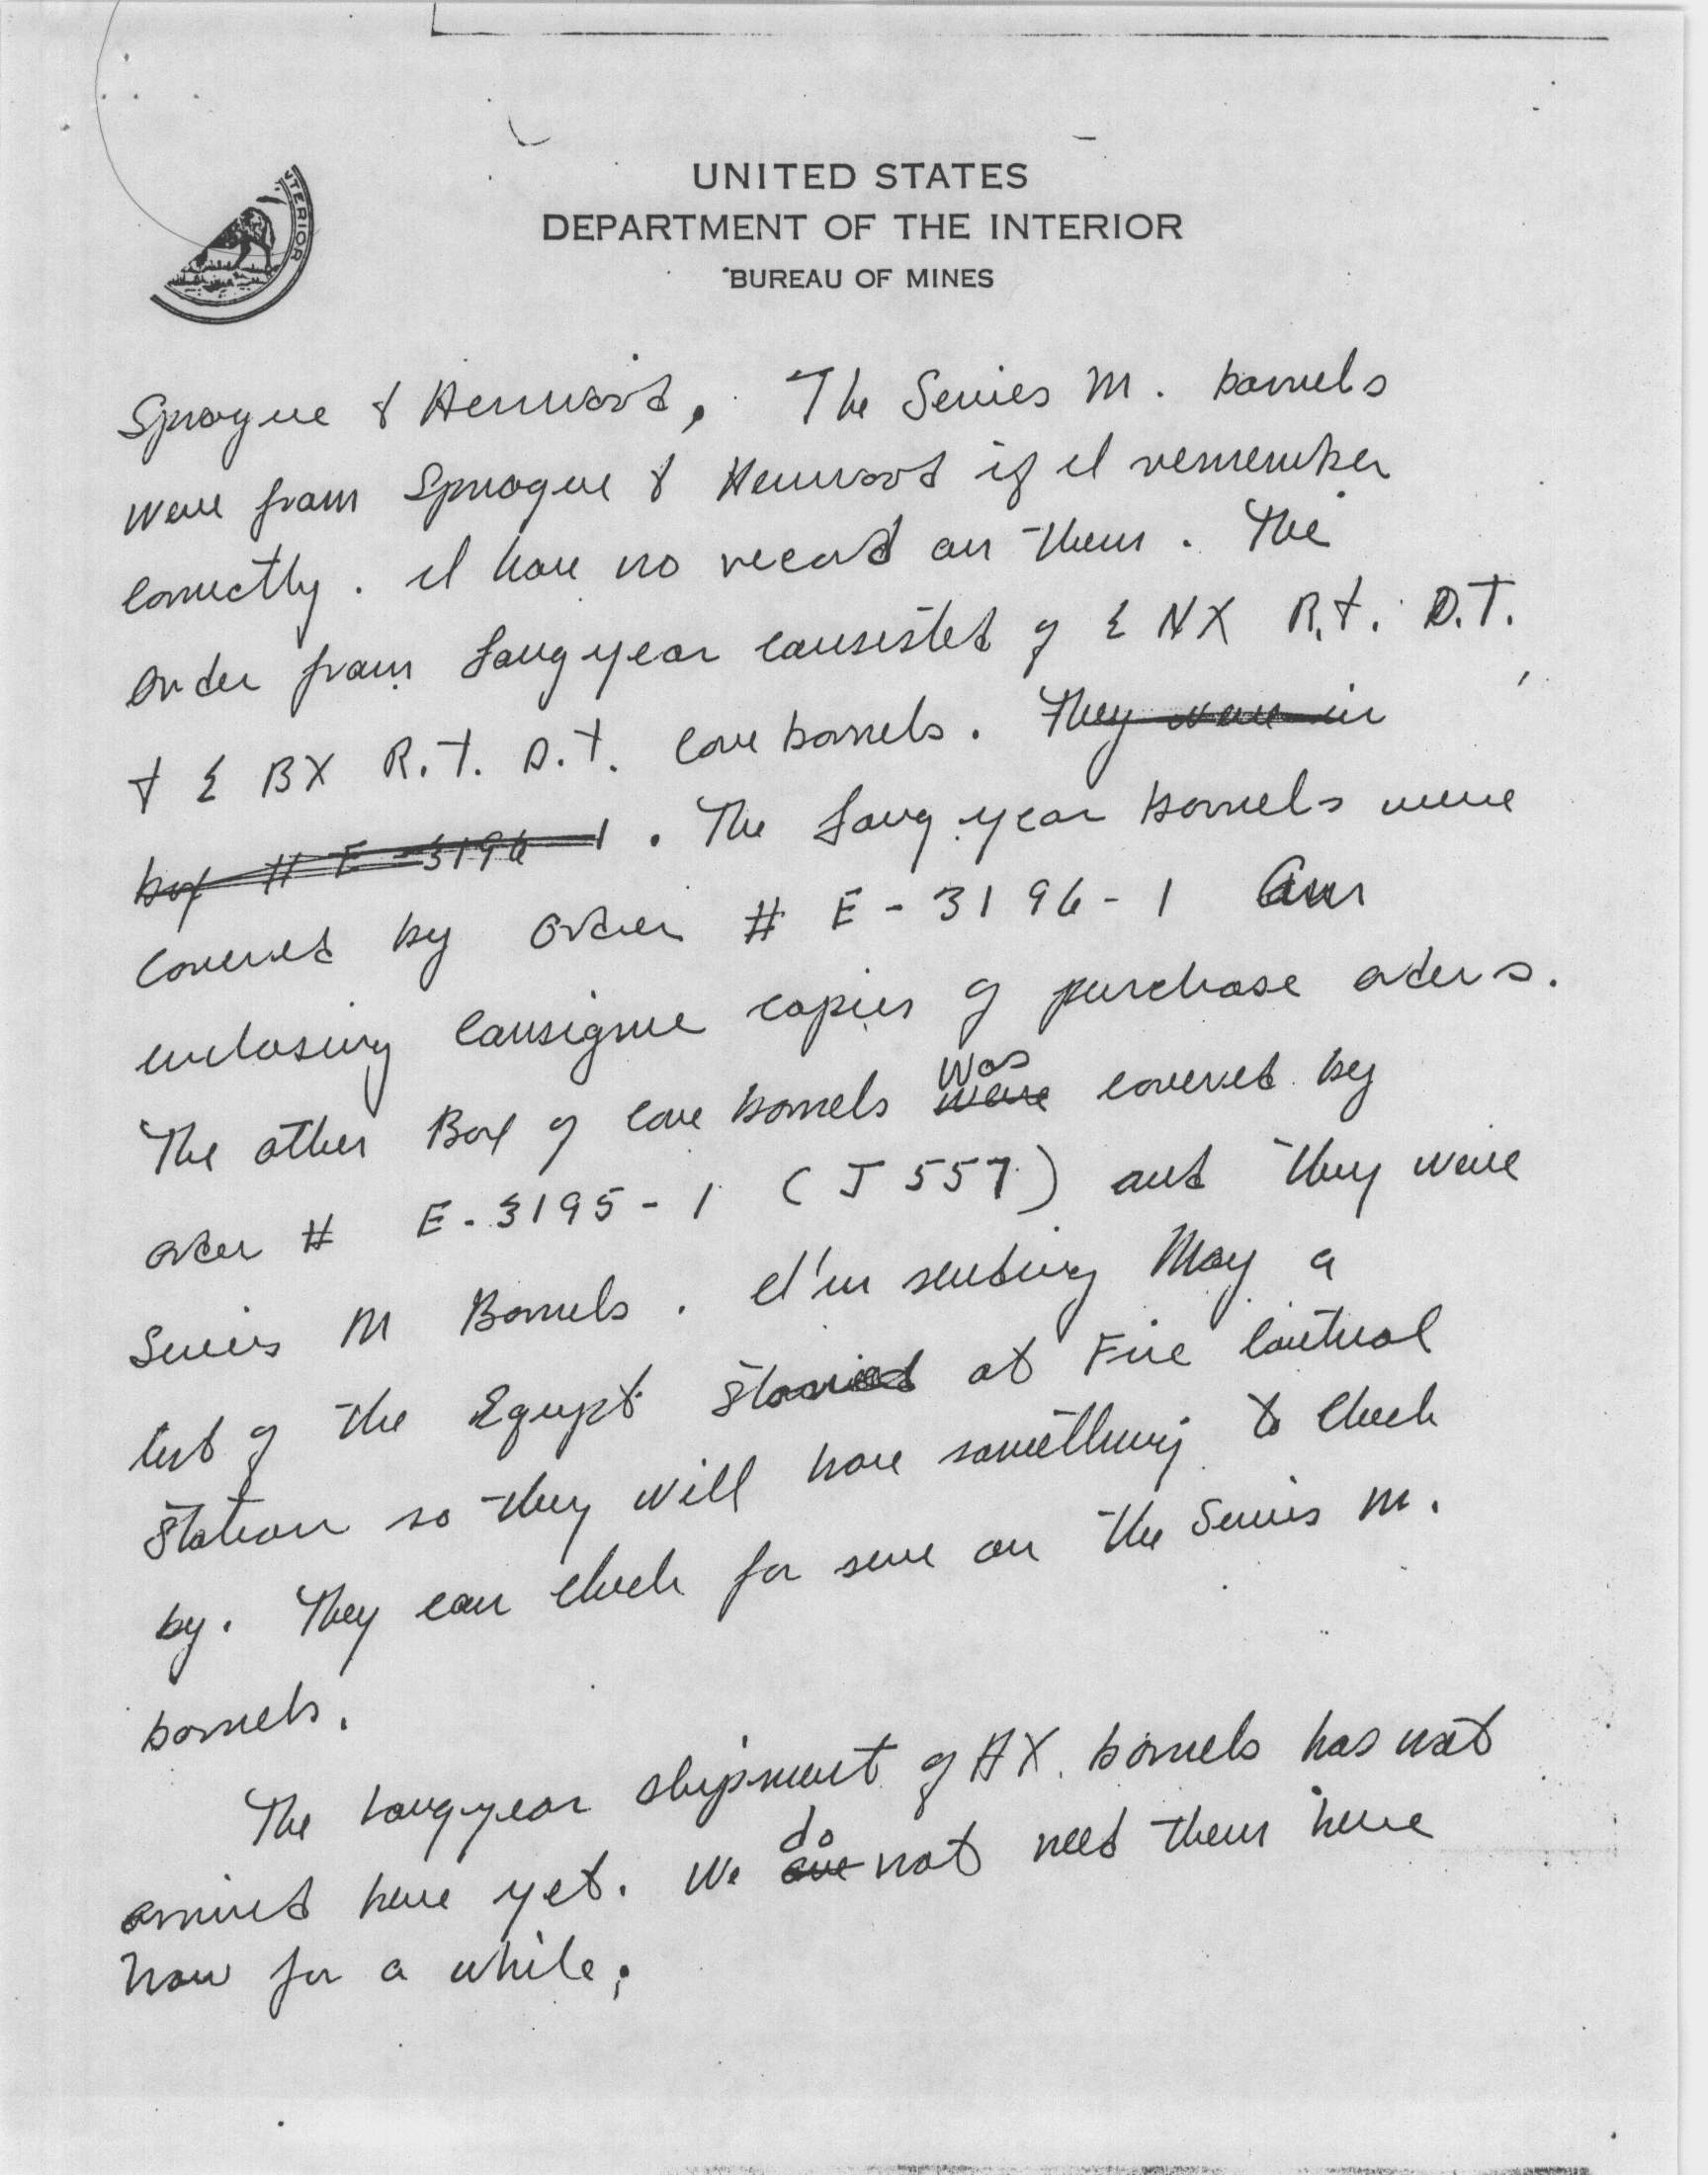 UNITED STATES
DEPARTMENT OF THE INTERIOR
BUREAU OF MINES
INTERIOR
Sprague & Henwood. The Series M. barrels
were from Sprague & Henwood if I remember
correctly. I have no record on them. The
order from Longyear consisted of 2 NX R.T. D.T.
+ 2 BX R.T. D.T. core barrels. They were in
box # E-3196-1. The Longyear barrels were
covered by order # E-3196-1 Am
enclosing consignee copies of purchase orders.
The other Box of core barrels were was covered by
order # E-3195-1 (J557) and they were
Series M Barrels. I'm sending May a
list of the Egypt at Fire Control
Station so they will have something to check
by. They can check for sure on the Series M.
barrels.
The Longyear shipment of AX. barrels has not
arrived here yet. We are do not need them here
now for a while.